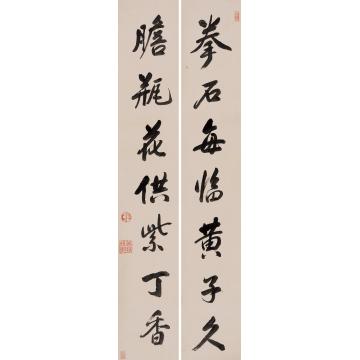 拳石每临黄子久
胆瓶花供紫丁香